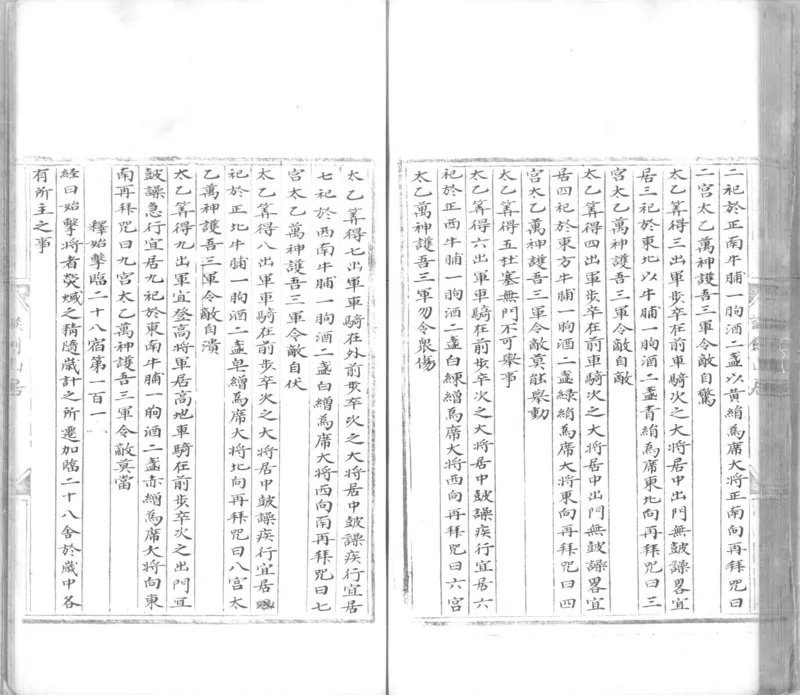 二祀於正南牛脯一朐酒二盞以黄絹為席大將正南向再拜咒曰
二宫太乙萬神護吾三軍令敵自驚
太乙筭得三出軍步卒在前車騎次之大將居中出門無鼓譟畧宜
居三祀於東北以牛脯一朐酒二盞青絹為席東北向再拜咒曰三
宫太乙萬神護吾三軍令敵自敵
太乙筭得四出軍步卒在前車騎次之大將居中出門無鼓譟畧宜
居四祀於東方牛脯一朐酒二盞緑絹為席大將東向再拜咒曰四
宫太乙萬神護吾三軍令敵莫能舉動
太乙筭得五杜塞無門不可舉事
太乙筭得六出軍車騎在前步卒次之大將居中鼓譟疾行宜居六
祀於正西牛脯一朐酒二盞白綵繒為席大將西向再拜咒曰六宫
太乙萬神護吾三軍勿令衆傷
太乙筭得七出軍車騎在外前步卒次之大將居中鼓譟疾行宜居
七祀於西南牛脯一朐酒二盞白繒為席大將西向南再拜咒曰七
宫太乙萬神護吾三軍令敵自伏
太乙筭得八出軍車騎在前步卒次之大將居中鼓譟疾行宜居
祀於正北牛脯一朐酒二盞皂繒為席大將北向再拜咒曰八宫太
乙萬神護吾三軍令敵自潰
太乙筭得九出軍宜登高將軍居高地車騎在前步卒次之出門宜
鼓譟急行宜居九祀於東南牛脯一朐酒二盞赤繒為席大將向東
南再拜咒曰九宫太乙萬神護吾三軍令敵莫當
釋始擊臨二十八宿第一百一
經曰始擊將者熒惑之精隨歲計之所遷加臨二十八舍於歲中各
有所主之事